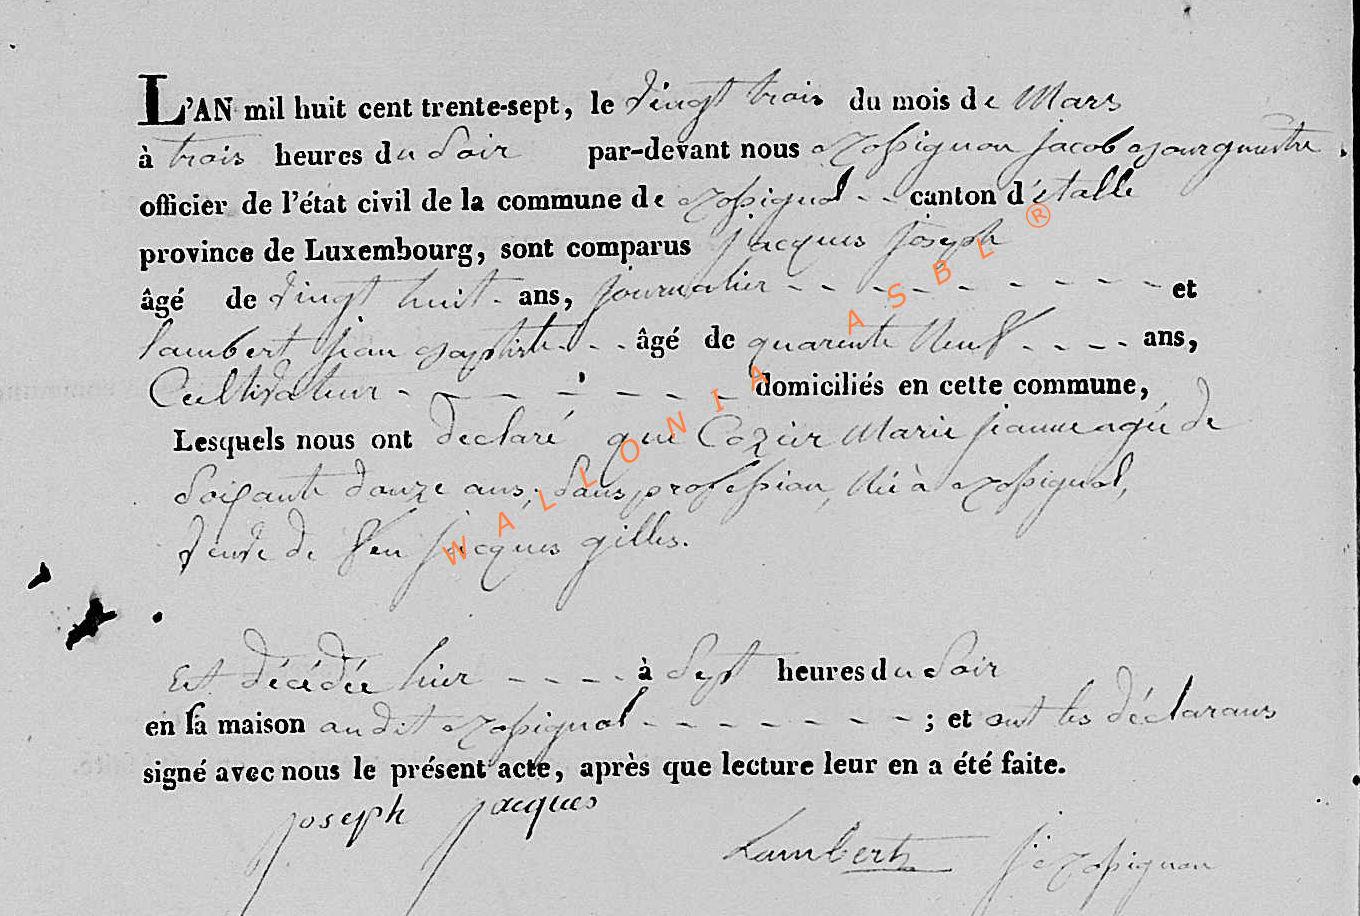 L'AN mil huit cent trente-sept, le vingt trois du mois de Mars
à trois heures du Soir par-devant nous Rossignon Jacob Bourgmestre
officier de l'état civil de la commune de Rossignol - - canton d'étalle
province de Luxembourg, sont comparus Jacques Joseph
âgé de vingt huit - ans, journalier - - - - - - - - - et
Lambert Jean Baptiste - - âgé de quarente Neuf - - - - ans,
Cultivateur - - - - - - - - domiciliés en cette commune,
Lesquels nous ont declaré que Cozier Marie Jeanne agée de
Soixante douze ans, Sans profession, Née à Rossignol,
veuve de feu Jacques gilles.
Est décédée hier - - - - à Sept heures du Soir
en sa maison audit Rossignol - - - - - - - ; et ont les déclarans
signé avec nous le présent acte, après que lecture leur en a été faite.
joseph jacques
Lambert J: Rossignon
WALLONIA ASBL ®